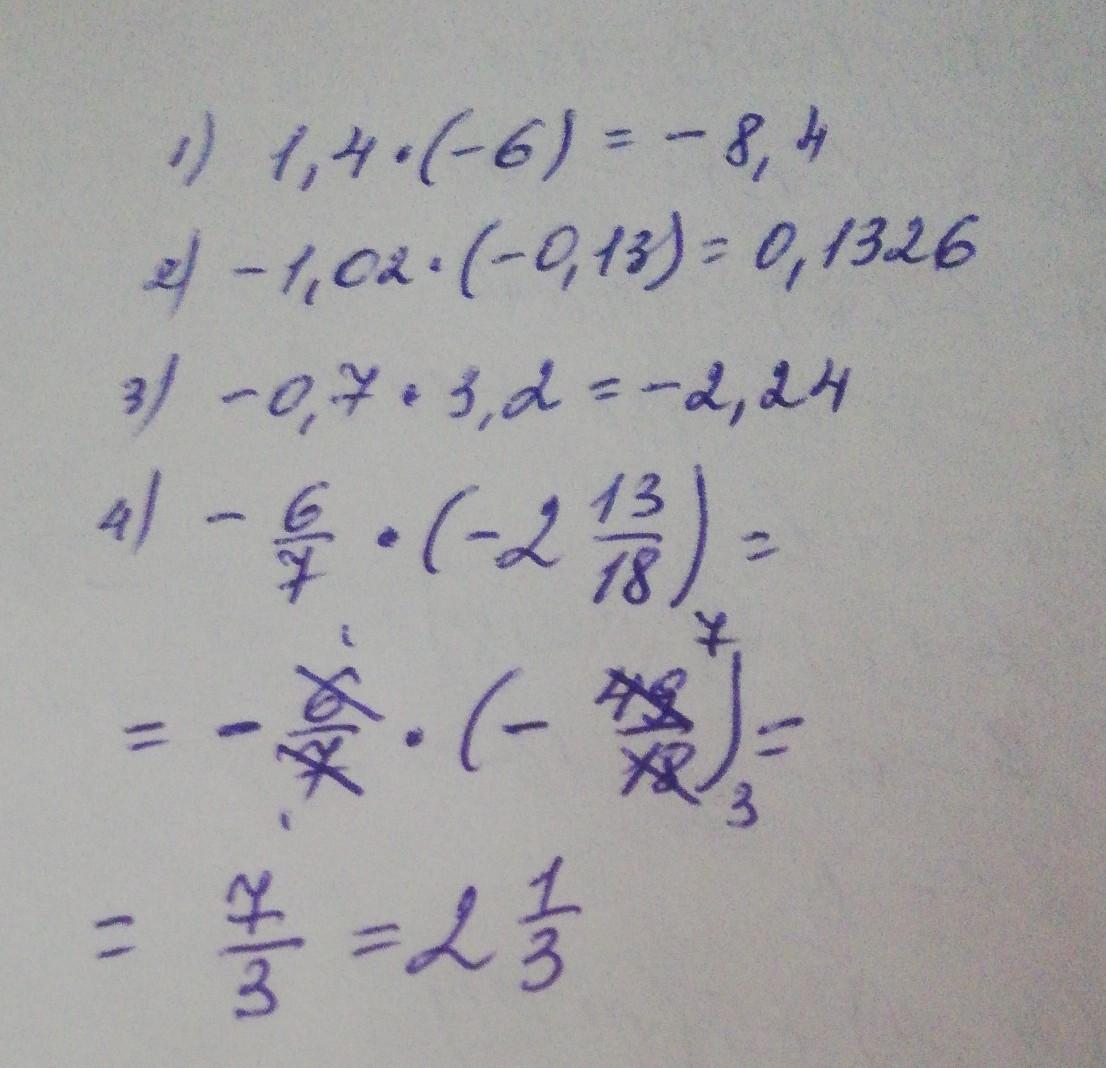 1) 1,4·(-6) = -8,4
2) -1,02·(-0,13) = 0,1326
3) -0,7·3,2 = -2,24
4) - 6/7 · (-2 13/18) =
= - 6/7 · (- 49/18) = 1 1 7 3
= 7/3 = 2 1/3